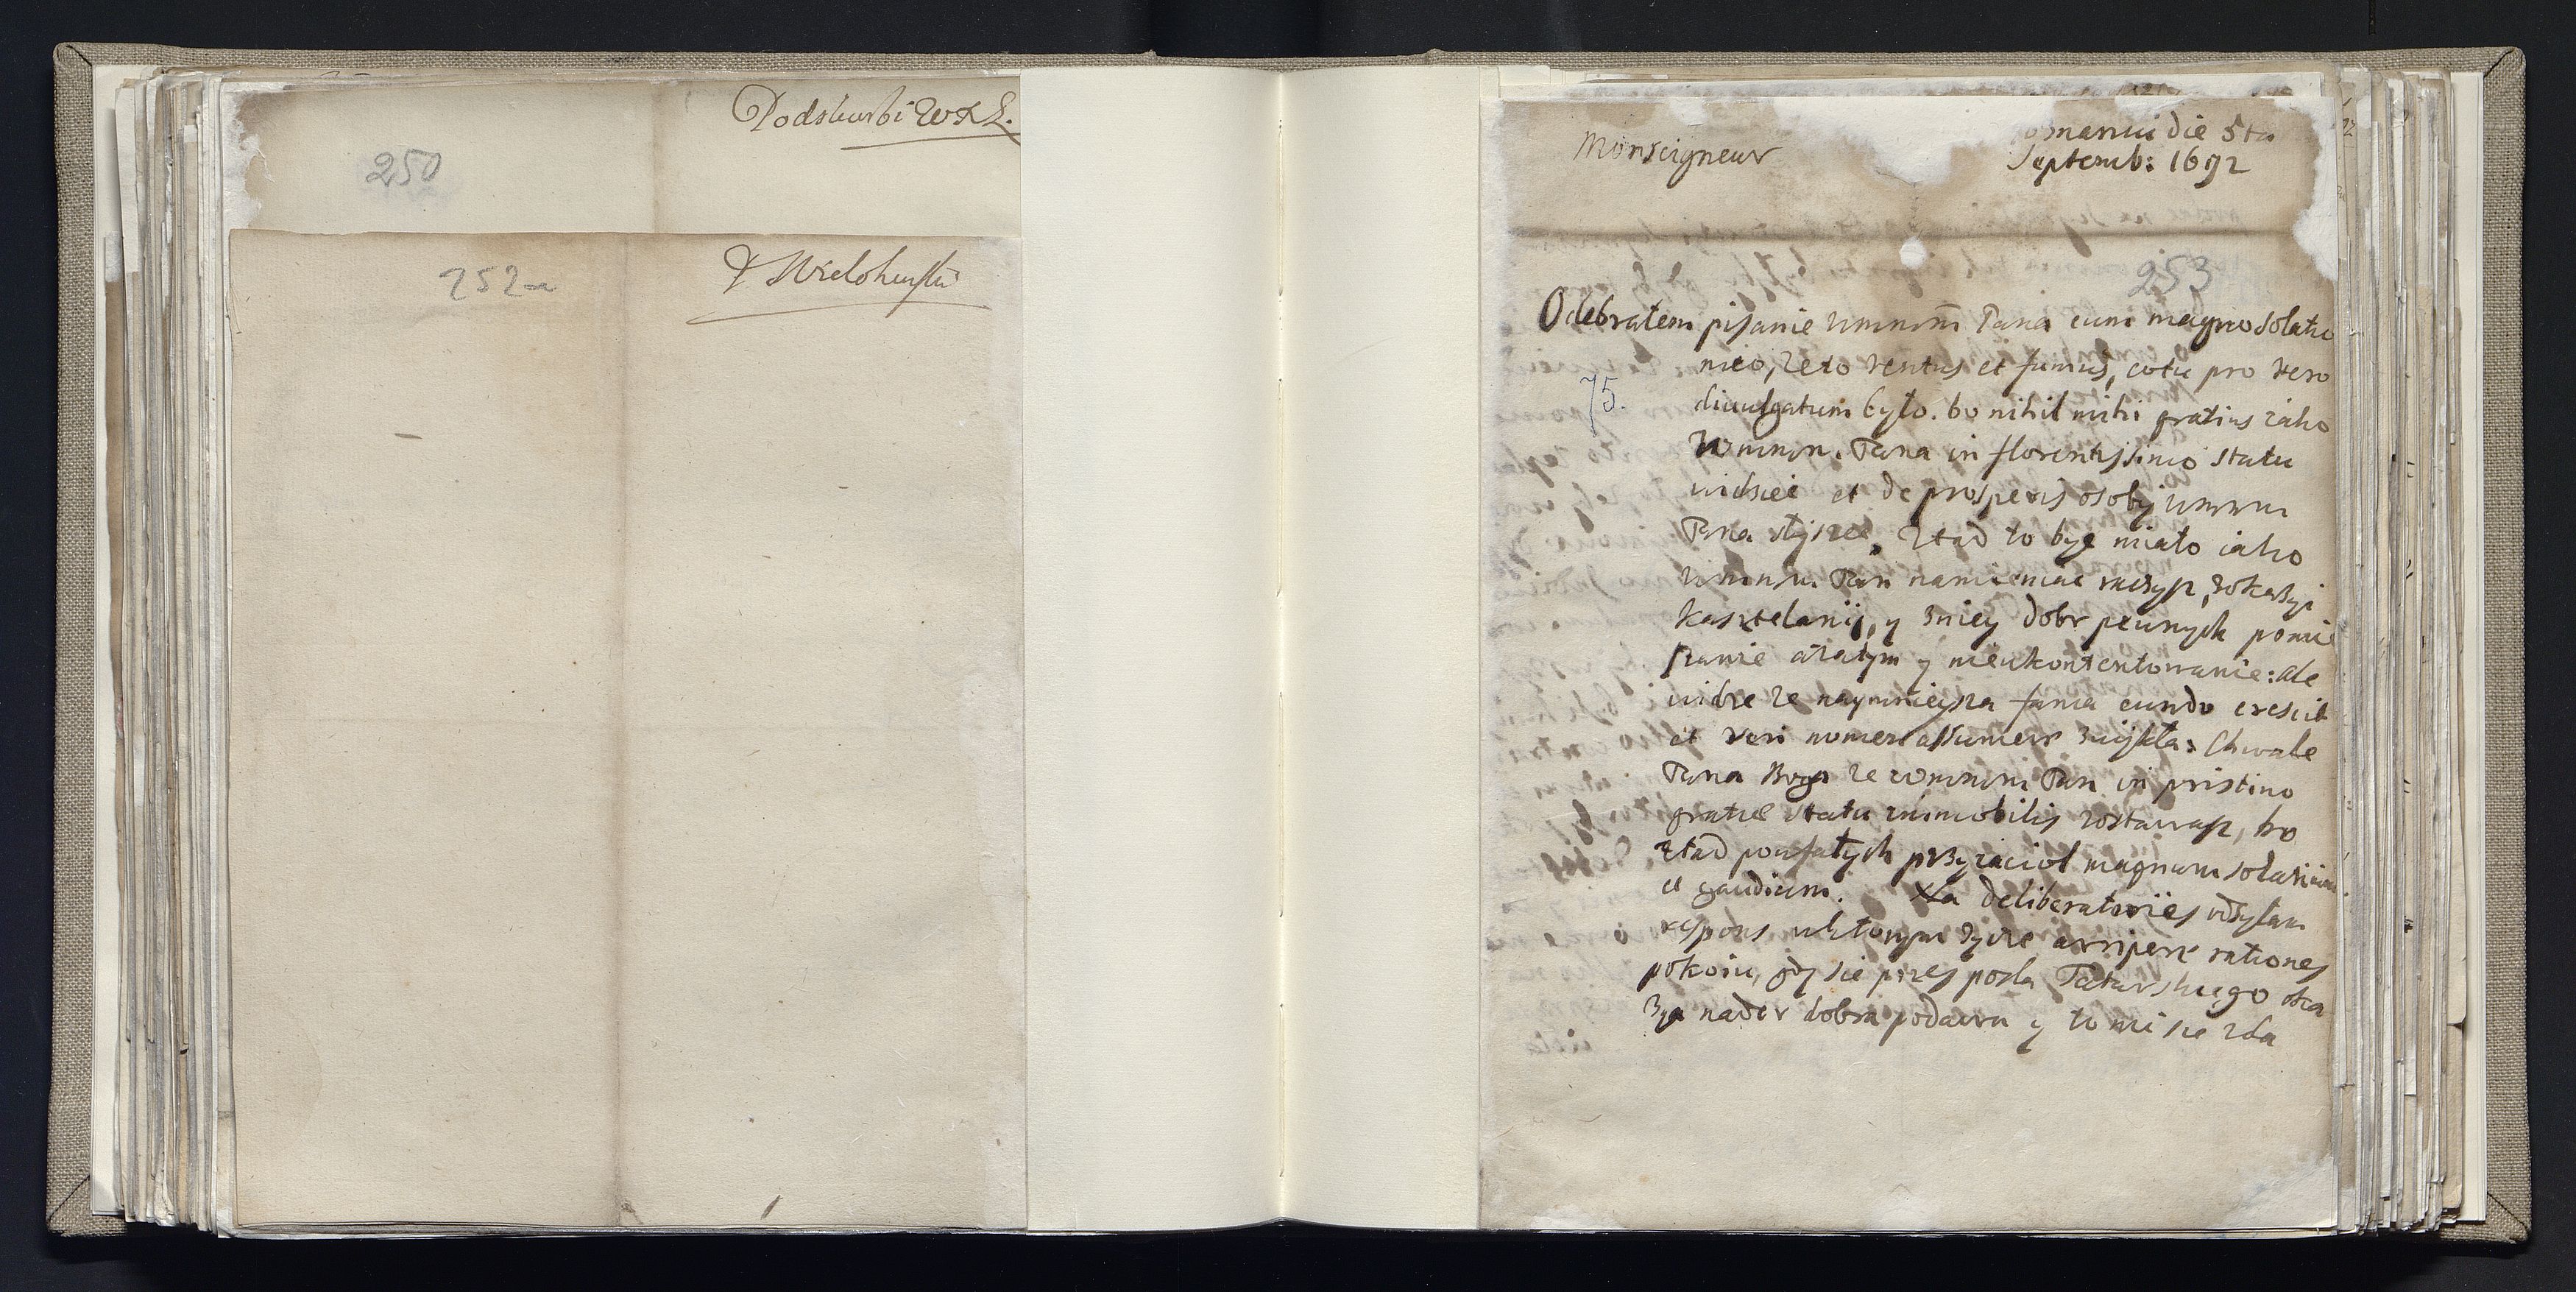 Podskarbi WXL.
250
252a
P Wielohurski
Monseigneur
die 5ta
Septemb: 1692
253
Odebrałem pisanie Wmmm Pana cum magno solatio
meo, że to ventus et fumus, co tu pro vero
75.
divulgatum było. bo nihil mihi gratius iako
Wmmm. Pana in florentissimo statu
widziec et de prosperis osoby Wmmm
Pana słyszec. Ztad to byc miało iako
Wmmm Pan namieniac raczysz, z okazyi
Kasztelanij, y z niey dobr pewnych pomie
szanie a zatym y nieukontentowanie: ale
widze ze naymnieysza fama eundo crescit
et veri nomen assumere zwykła: Chwale
Pana Boga ze Wmmm Pan in pristino
gratiæ statu immobilis zostawasz, bo
ztad poufałych przyiaciol magnum solatium
et gaudium. Na deliberatories odsyłam
respons w ktorym zycze arripere rationes
pokoiu, gdy sie przez posła Tatarskiego oka
zya nader dobra podawa y to mi sie zda